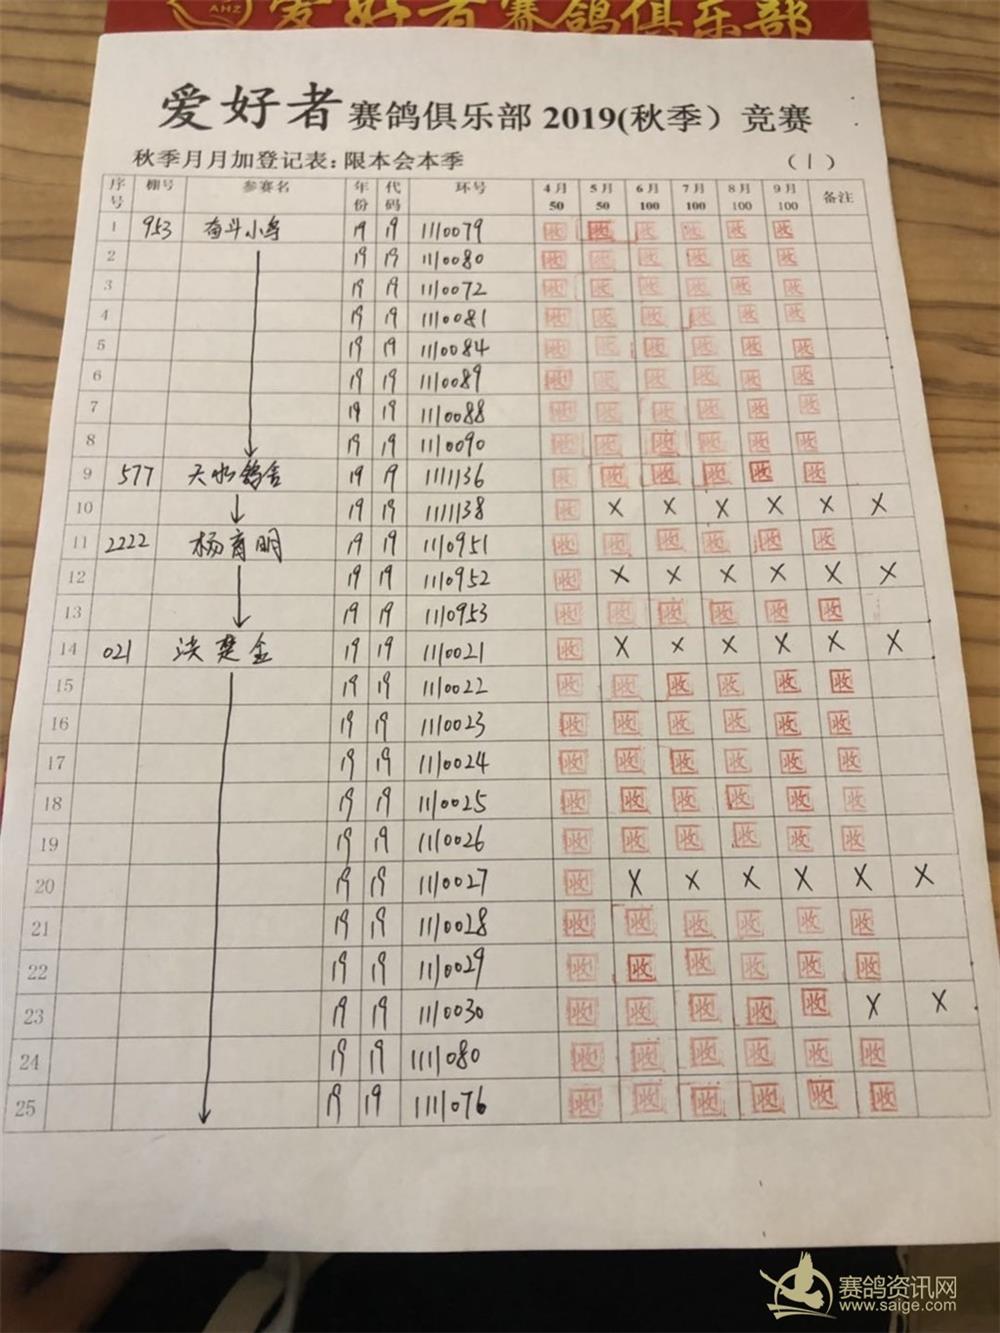 AHZ
爱好者赛鸽俱乐部
爱好者赛鸽俱乐部 2019(秋季）竞赛
秋季月月加登记表:限本会本季 （1）
序号 棚号 参赛名 年份 代码 环号 4月50 5月50 6月100 7月100 8月100 9月100 备注
1 953 奋斗小鸟 19 19 1110079 收 收 收 收 收 收
2 19 19 1110080 收 收 收 收 收 收
3 19 19 1110072 收 收 收 收 收 收
4 19 19 1110081 收 收 收 收 收 收
5 19 19 1110084 收 收 收 收 收 收
6 19 19 1110089 收 收 收 收 收 收
7 19 19 1110088 收 收 收 收 收 收
8 19 19 1110090 收 收 收 收 收 收
9 577 天水鸽舍 19 19 1111136 收 收 收 收 收 收
10 19 19 1111138 收 X X X X X X
11 2222 杨育明 19 19 1110951 收 收 收 收 收 收
12 19 19 1110952 收 X X X X X X
13 19 19 1110953 收 收 收 收 收 收
14 021 洪楚金 19 19 1110021 收 X X X X X X
15 19 19 1110022 收 收 收 收 收 收
16 19 19 1110023 收 收 收 收 收 收
17 19 19 1110024 收 收 收 收 收 收
18 19 19 1110025 收 收 收 收 收 收
19 19 19 1110026 收 收 收 收 收 收
20 19 19 1110027 收 X X X X X X
21 19 19 1110028 收 收 收 收 收 收
22 19 19 1110029 收 收 收 收 收 收
23 19 19 1110030 收 收 收 收 收 X X
24 19 19 1111080 收 收 收 收 收 收
25 19 19 1111076 收 收 收 收 收 收
赛鸽资讯网
www.saige.com